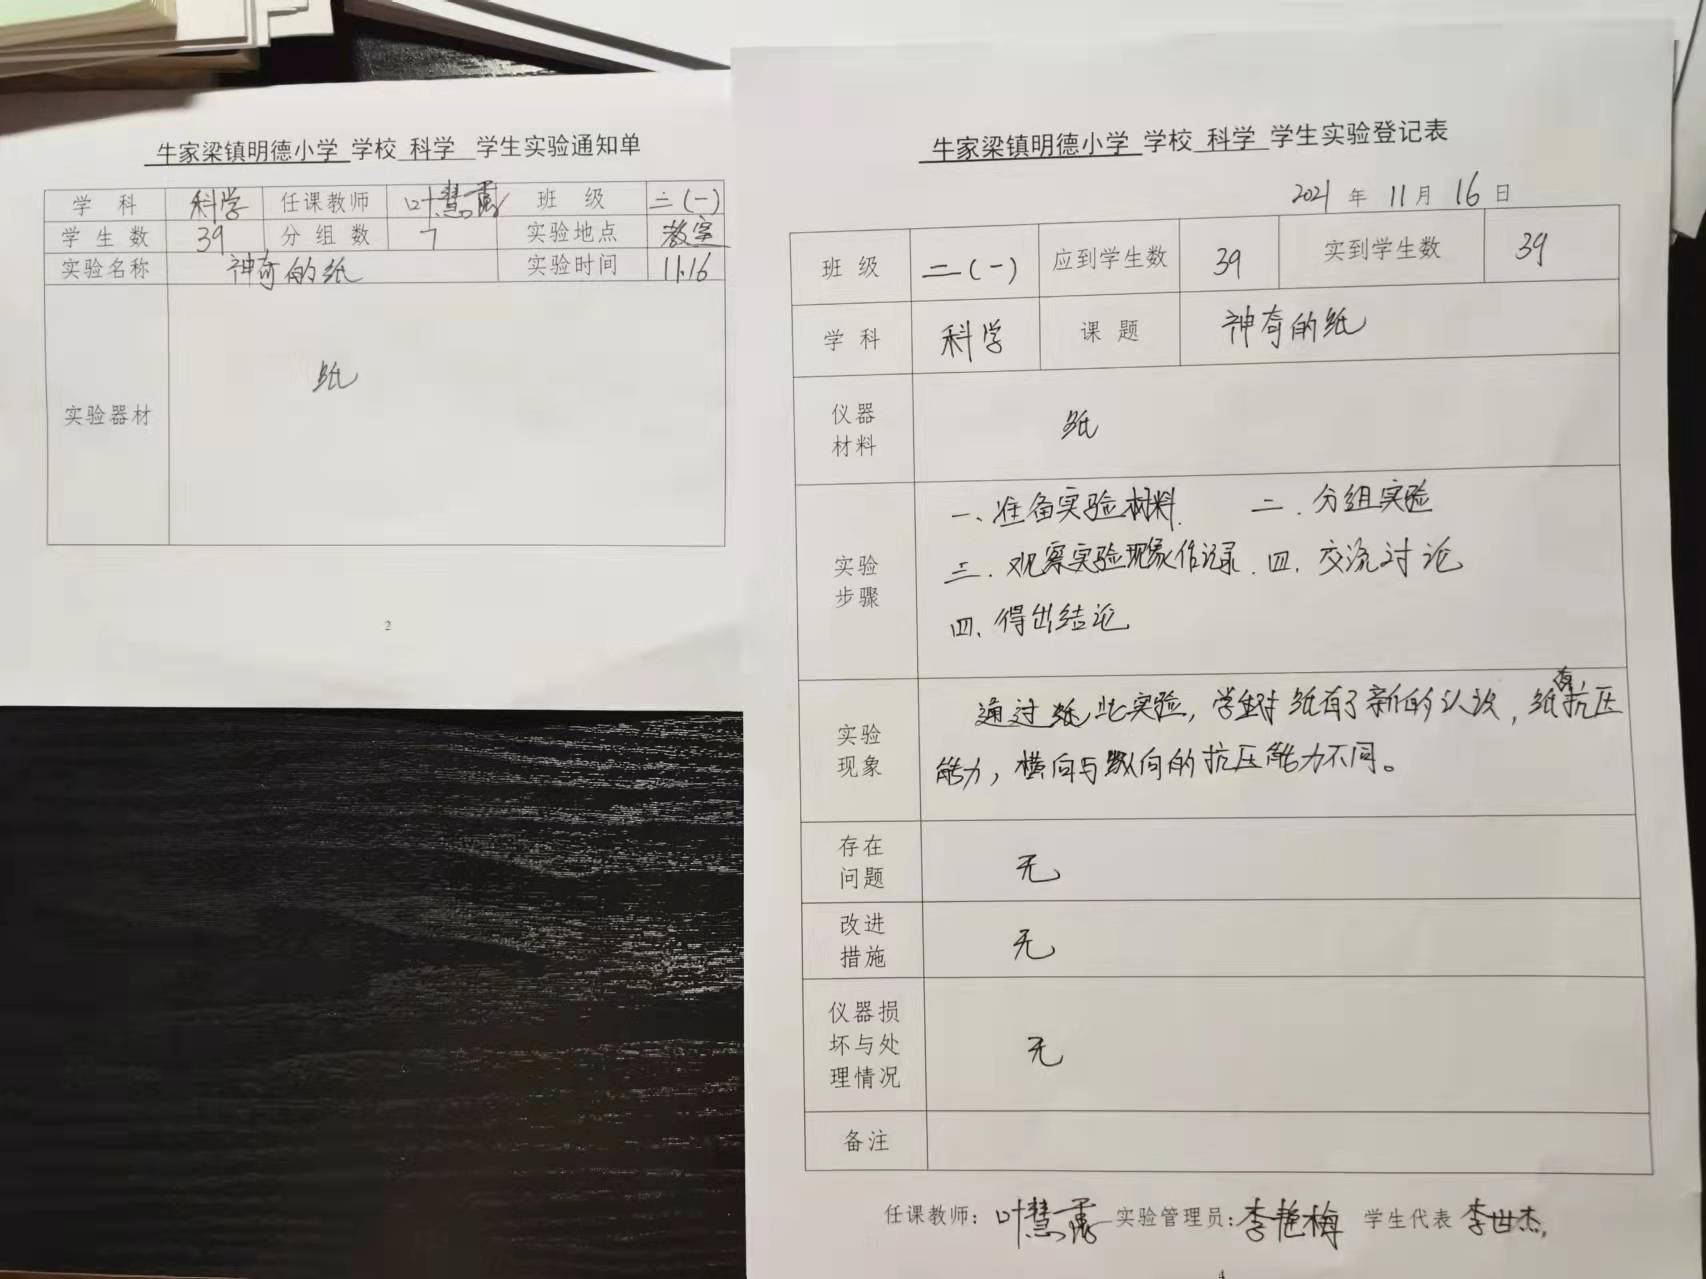 牛家梁镇明德小学 学校 科学 学生实验通知单
学 科 科学 任课教师 叶慧露 班 级 二(一)
学 生 数 39 分 组 数 7 实验地点 教室
实验名称 神奇的纸 实验时间 11.16
实验器材 纸
2
牛家梁镇明德小学 学校 科学 学生实验登记表
2021 年 11 月 16 日
班 级 二(一) 应到学生数 39 实到学生数 39
学 科 科学 课 题 神奇的纸
仪器
材料
纸
实验
步骤
一、准备实验材料. 二.分组实验
三.观察实验现象作记录.四.交流讨论
四、得出结论
实验
现象
通过纸此实验,学生对纸有了新的认识,纸有抗压
能力,横向与纵向的抗压能力不同。
存在
问题
无
改进
措施
无
仪器损
坏与处
理情况
无
备注
任课教师: 叶慧露 实验管理员:李艳梅 学生代表 李世杰
4